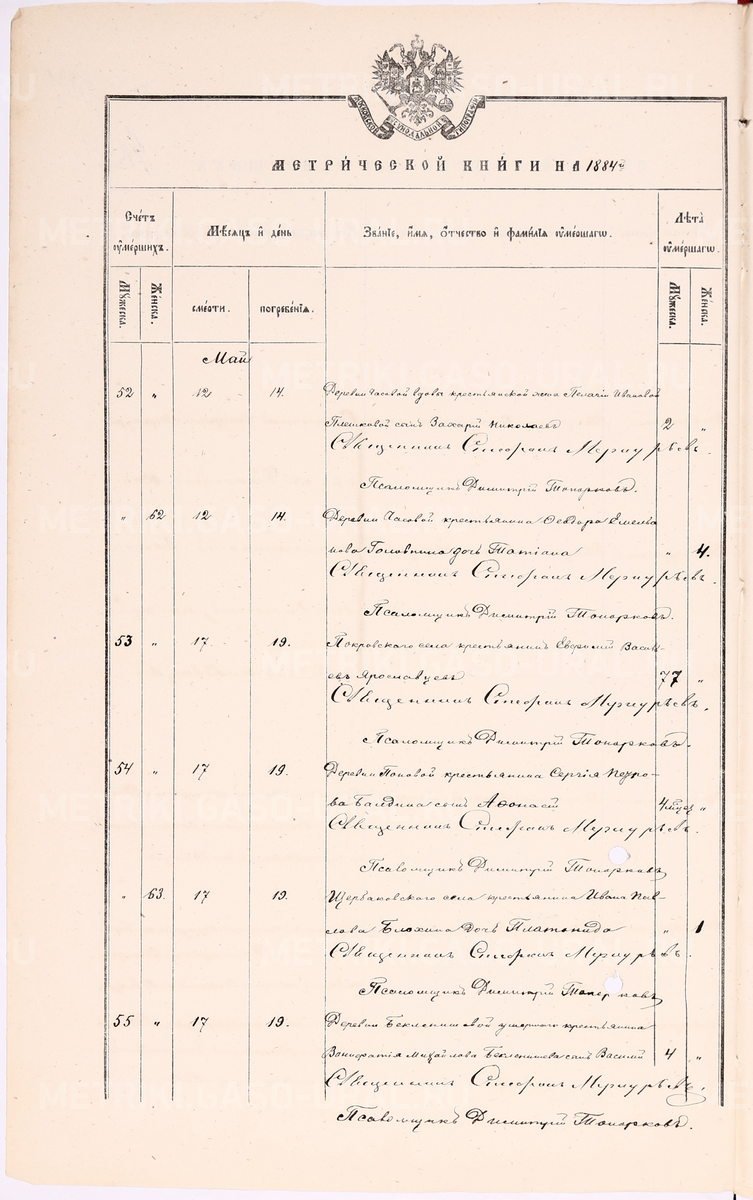 МОСКОВСКОЙ СѴНОДАЛЬНОЙ ТИПОГРАФІИ
МЕТРИ́ЧЕСКОЙ КНИ́ГИ НА 1884й
Сче́тъ ᲂумéршихъ.
Мѣ́сѧцъ и҆ де́нь
Зва́нїе, и҆́мѧ, ѻ҆́тчество и҆ фами́лїѧ ᲂумéршагѡ.
Лѣ́та ᲂумéршагѡ.
Мꙋ́жеска.
Же́нска.
сме́рти.
погребе́нїѧ.
Мꙋ́жеска.
Же́нска.
Май
52 „ 12 14. Деревни Часовой вдовы крестьянской жены Пелагіи Ивановой
Плешковой сынъ Захарій Николаевъ 2 „
Священникъ Стефанъ Меркурьевъ.
Псаломщикъ Димитрій Топорковъ.
„ 62 12 14. Деревни Часовой крестьянина Ѳеодора Емелья
нова Головнина дочь Татіана „ 4.
Священникъ Стефанъ Меркурьевъ.
Псаломщикъ Димитрій Топорковъ.
53 „ 17 19. Покровскаго села крестьянинъ Евфимій Василь-
евъ Ярославцевъ 77 „
Священникъ Стефанъ Меркурьевъ.
Псаломщикъ Димитрій Топорковъ.
54 „ 17 19. Деревни Поповой крестьянина Сергія Петро-
ва Балдина сынъ Аѳонасій 4 мѣсяц „
Священникъ Стефанъ Меркурьевъ.
Псаломщикъ Димитрій Топорковъ
„ 63. 17 19. Щербаковскаго села крестьянина Ивана Пав-
лова Блохина дочь Платонида „ 1
Священникъ Стефанъ Меркурьевъ.
Псаломщикъ Димитрій Топорковъ
55 „ 17 19. Деревни Бекленишовой умершаго крестьянина
Вонифатія Михайлова Бекленишева сынъ Василій 4 „
Священникъ Стефанъ Меркурьевъ.
Псаломщикъ Димитрій Топорковъ.